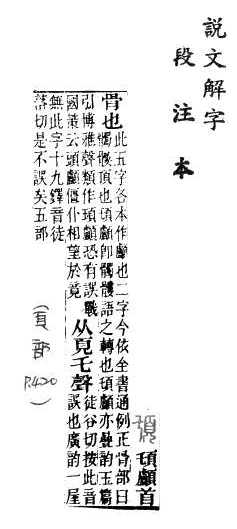 說文解字
段注本
𩑒顱首
骨也
此五字各本作顱也二字今依全書通例正骨部曰
髑髏頂也𩑒顱卽髑髏語之轉也𩑒顱亦㬪韵玉篇
引博雅聲類作𩑒顱恐有誤戰
國策云頭顱僵仆相望於竟
从頁乇聲
徒谷切按此音
誤也廣韵一屋
無此字十九鐸音徒
落切是不誤矣五部
(頁部 P.420)